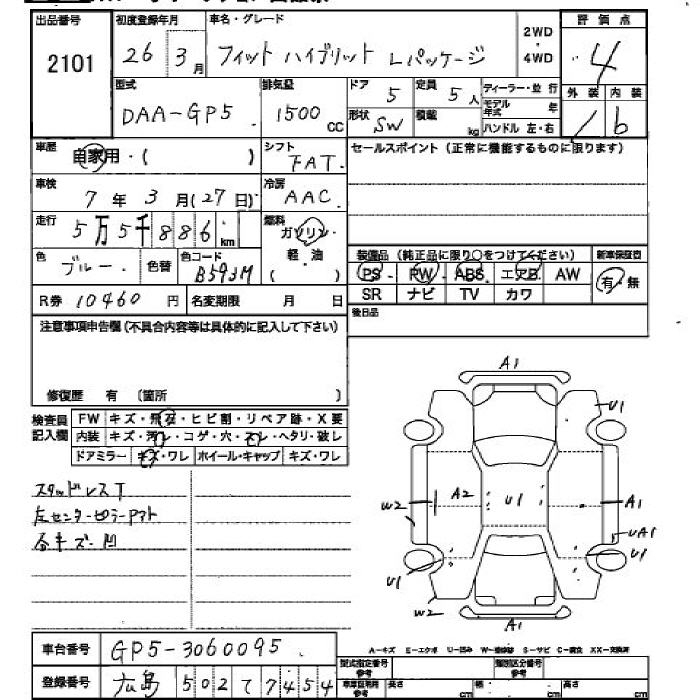 出品番号 初度登録年月 車名・グレード 評価点
2101 26年3月 フィット ハイブリット Lパッケージ 2WD・4WD 4
型式 排気量 ドア 定員 ディーラー・並行 外装 内装
DAA-GP5 1500 CC 5 5人 モデル年式 年
形状 SW 積載 kg ハンドル 左・右 b
車歴 自家用・( ) シフト FAT セールスポイント (正常に機能するものに限ります)
車検 7年3月(27日) 冷房 AAC
走行 5万5千886km 燃料 ガソリン・軽・油 ( )
色 ブルー 色替 色コード B593M 装備品 (純正品に限り○をつけてください) 新車保証書
PS PW ABS エアB AW 有・無
R券 10460円 名変期限 月 日 SR ナビ TV カワ
注意事項申告欄 (不具合内容等は具体的に記入して下さい) 後日品
修復歴 有 (箇所 )
検査員記入欄 FW キズ・飛石・ヒビ割・リペア跡・X要
内装 キズ・汚レ・コゲ・穴・スレ・ヘタリ・破レ
ドアミラー キズ・ワレ ホイール・キャップ キズ・ワレ
スタッドレスT
左センターピラーPアト
各キズ・凹
A1
U1
W2 A2 U1 A1
UA1
U1 U1
W2 A1
車台番号 GP5-3060095
A-キズ E-エクボ U-凹み W-補修跡 S-サビ C-腐食 XX-交換済
登録番号 広島 502 て 7454
型式指定番号 参考 類別区分番号 参考
車庫証明用 参考 長さ cm 幅 cm 高さ cm